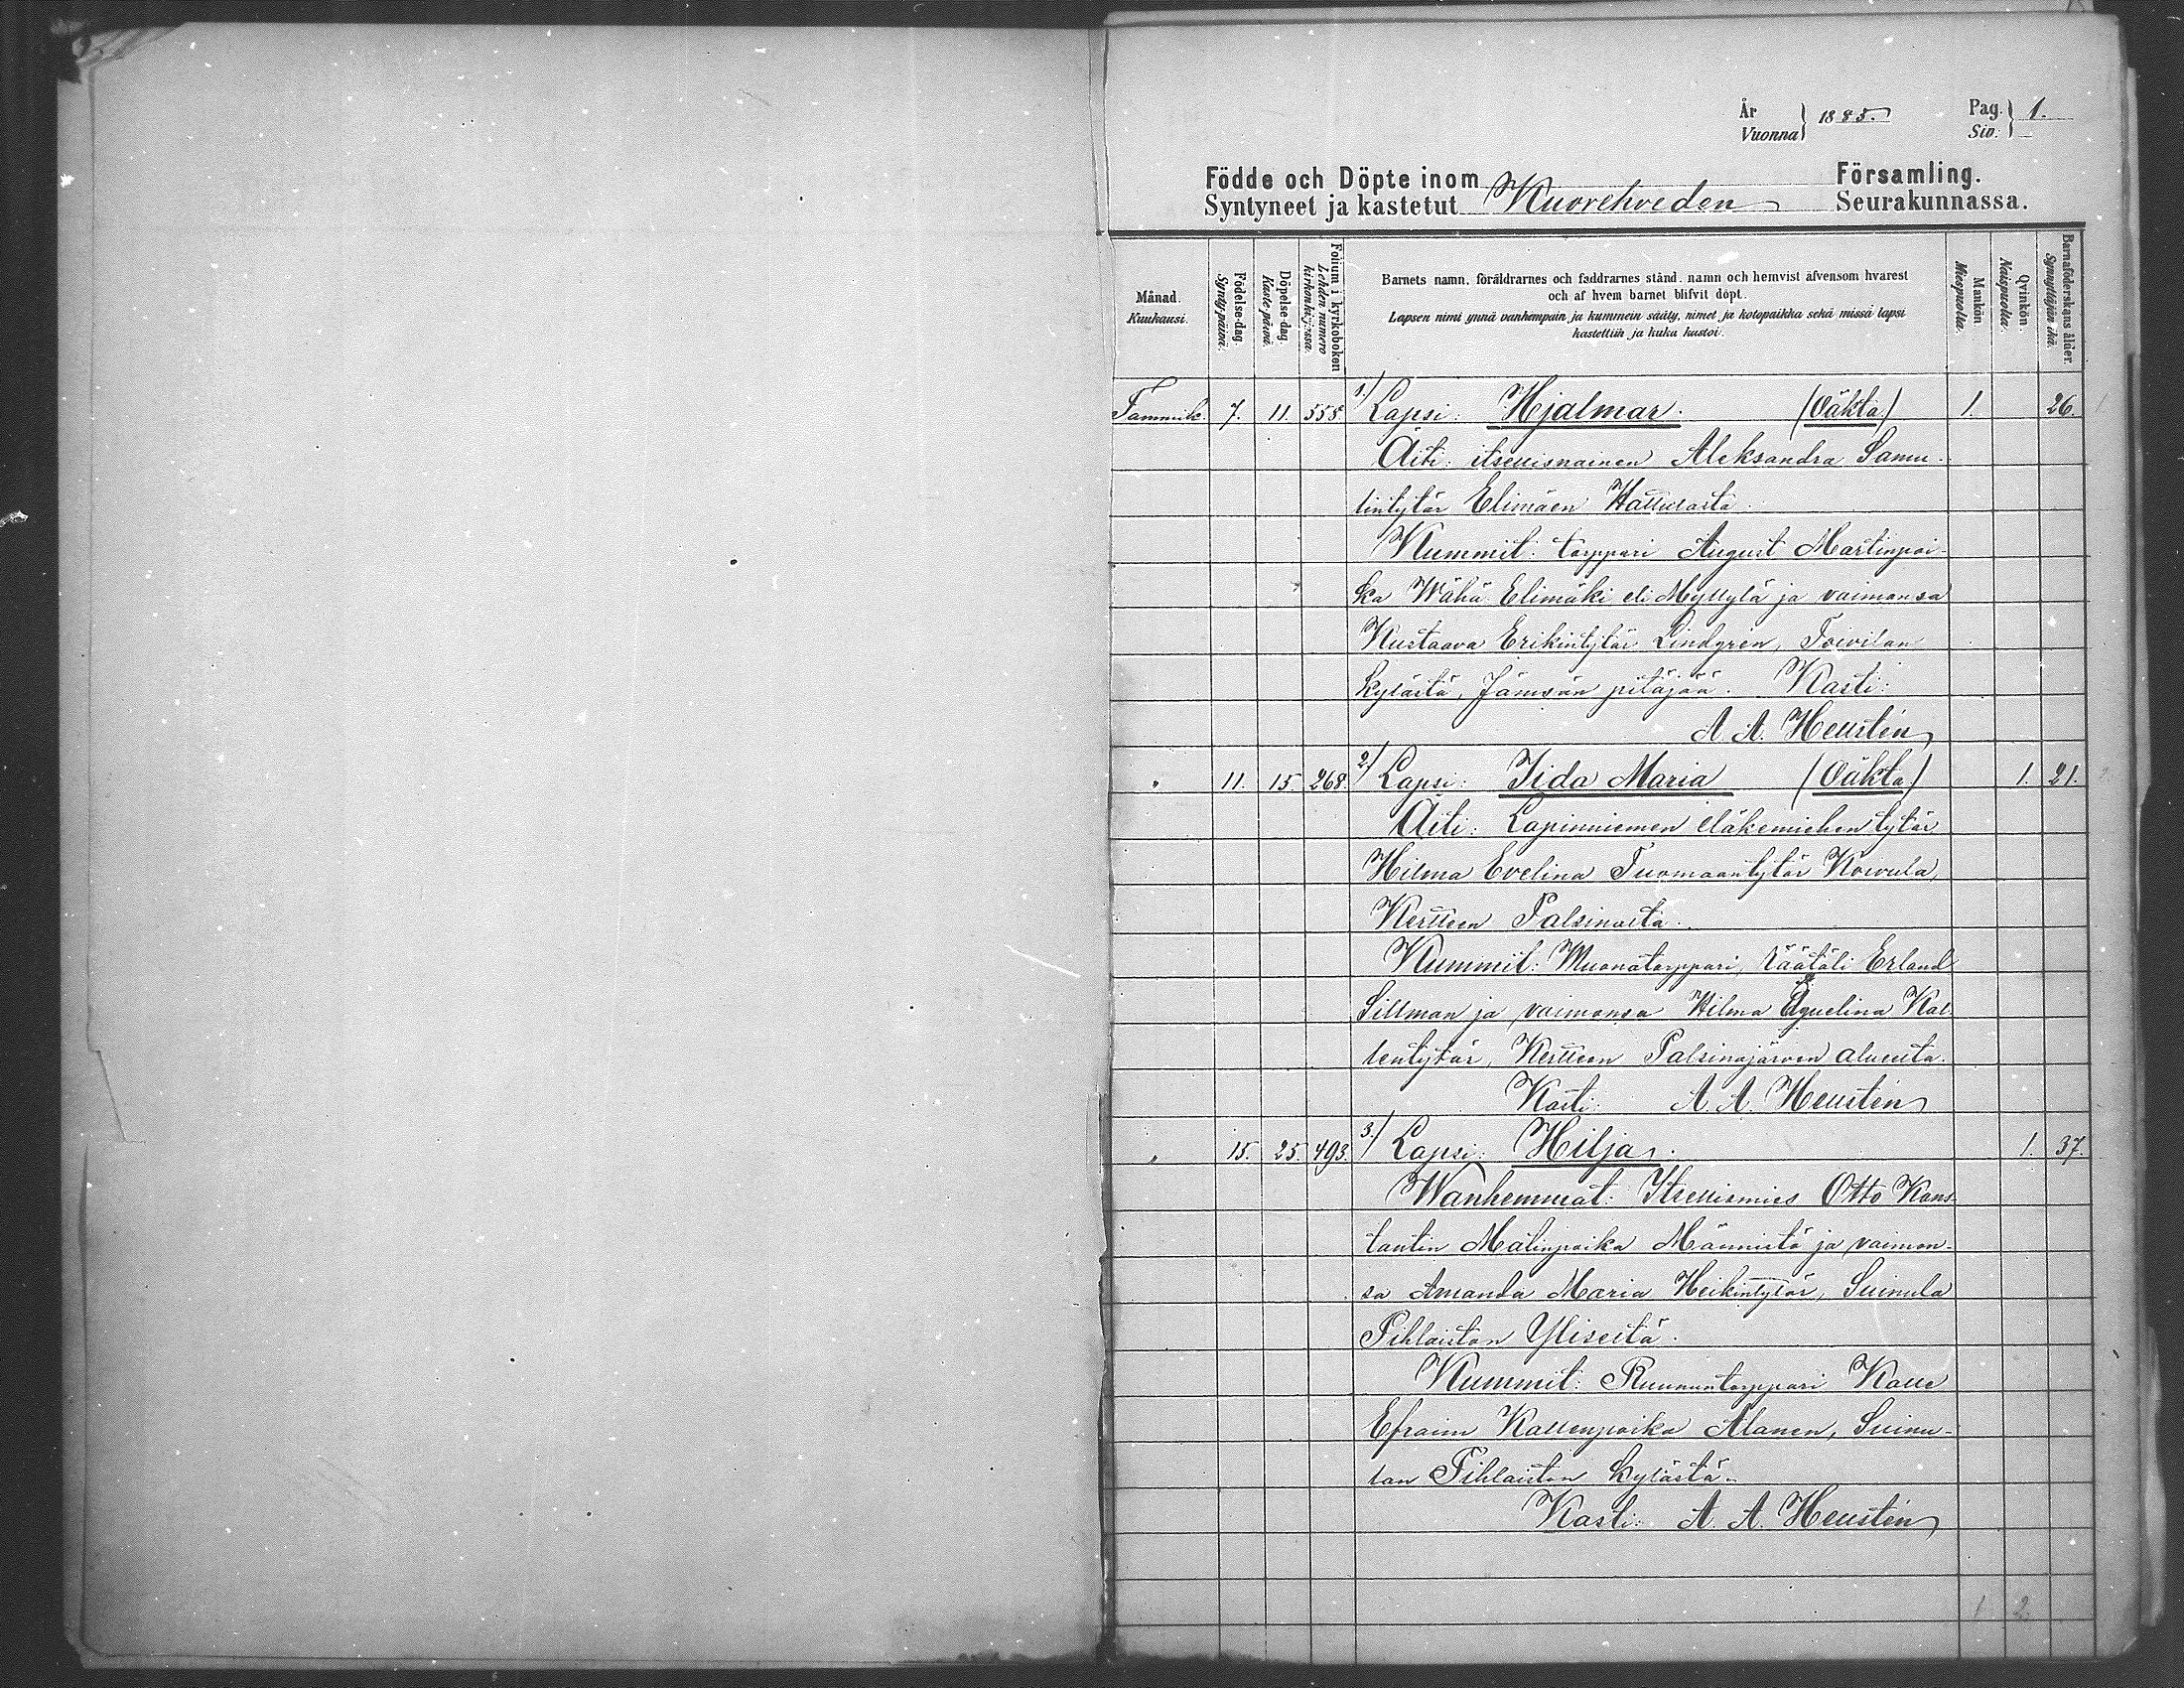 År
Vuonna } 1885. Pag.
Siv. } 1.
Födde och Döpte inom Församling.
Syntyneet ja kastetut Kuorehveden Seurakunnassa.
Månad.
Kuukausi.
Födelse-dag.
Synty-päivä.
Döpelse-dag.
Kaste-päivä.
Folium i kyrkoboken
Lehden numero
kirkonkirjassa.
Barnets namn, föräldrarnes och faddrarnes stånd, namn och hemvist äfvensom hvarest
och af hvem barnet blifvit döpt.
Lapsen nimi ynnä vanhempain ja kummein sääty, nimet ja kotopaikka sekä missä lapsi
kastettiin ja kuka kastoi.
Mankön
Miespuolta.
Qvinkön.
Naispuolta.
Barnaföderskans ålder.
Synnyttäjän ikä.
Tammik. 7. 11. 558. 1.) Lapsi: Hjalmar. (Oäkta) 1. 26.
Äiti: itsellisnainen Aleksandra Samu-
lintytär Elimäen Hallilasta.
Kummit: torppari August Martinpoi-
ka Wähä Elimäki eli Myllylä ja vaimonsa
Kustaava Erikintytär Lindgrén, Toivilan
kylästä, Jämsän pitäjää. Kasti:
A. A. Hellstén
" 11. 15. 268. 2.) Lapsi: Iida Maria (Oäkta) 1. 21.
Äiti: Lapinniemen eläkemiehen tytär
Hilma Evelina Tuomaantytär Koivula,
Kertteen Palsinasta.
Kummit: Muonatorppari, räätäli Erland
Sillman ja vaimonsa Hilma Eguelina Kal-
lentytär, Kertteen Palsinajärven alueelta.
Kasti: A. A. Hellstén
" 15. 25. 493. 3.) Lapsi: Hilja. 1. 37.
Wanhemmat: Itsellismies Otto Kons-
tantin Matinpoika Männistö ja vaimon-
sa Amanda Maria Heikintytär, Suinula
Pihlaiston Yliseltä.
Kummit: Ruununtorppari Kalle
Efraim Kallenpoika Alanen, Suinu-
lan Pihlaiston kylästä.
Kasti: A. A. Hellstén
1 2.